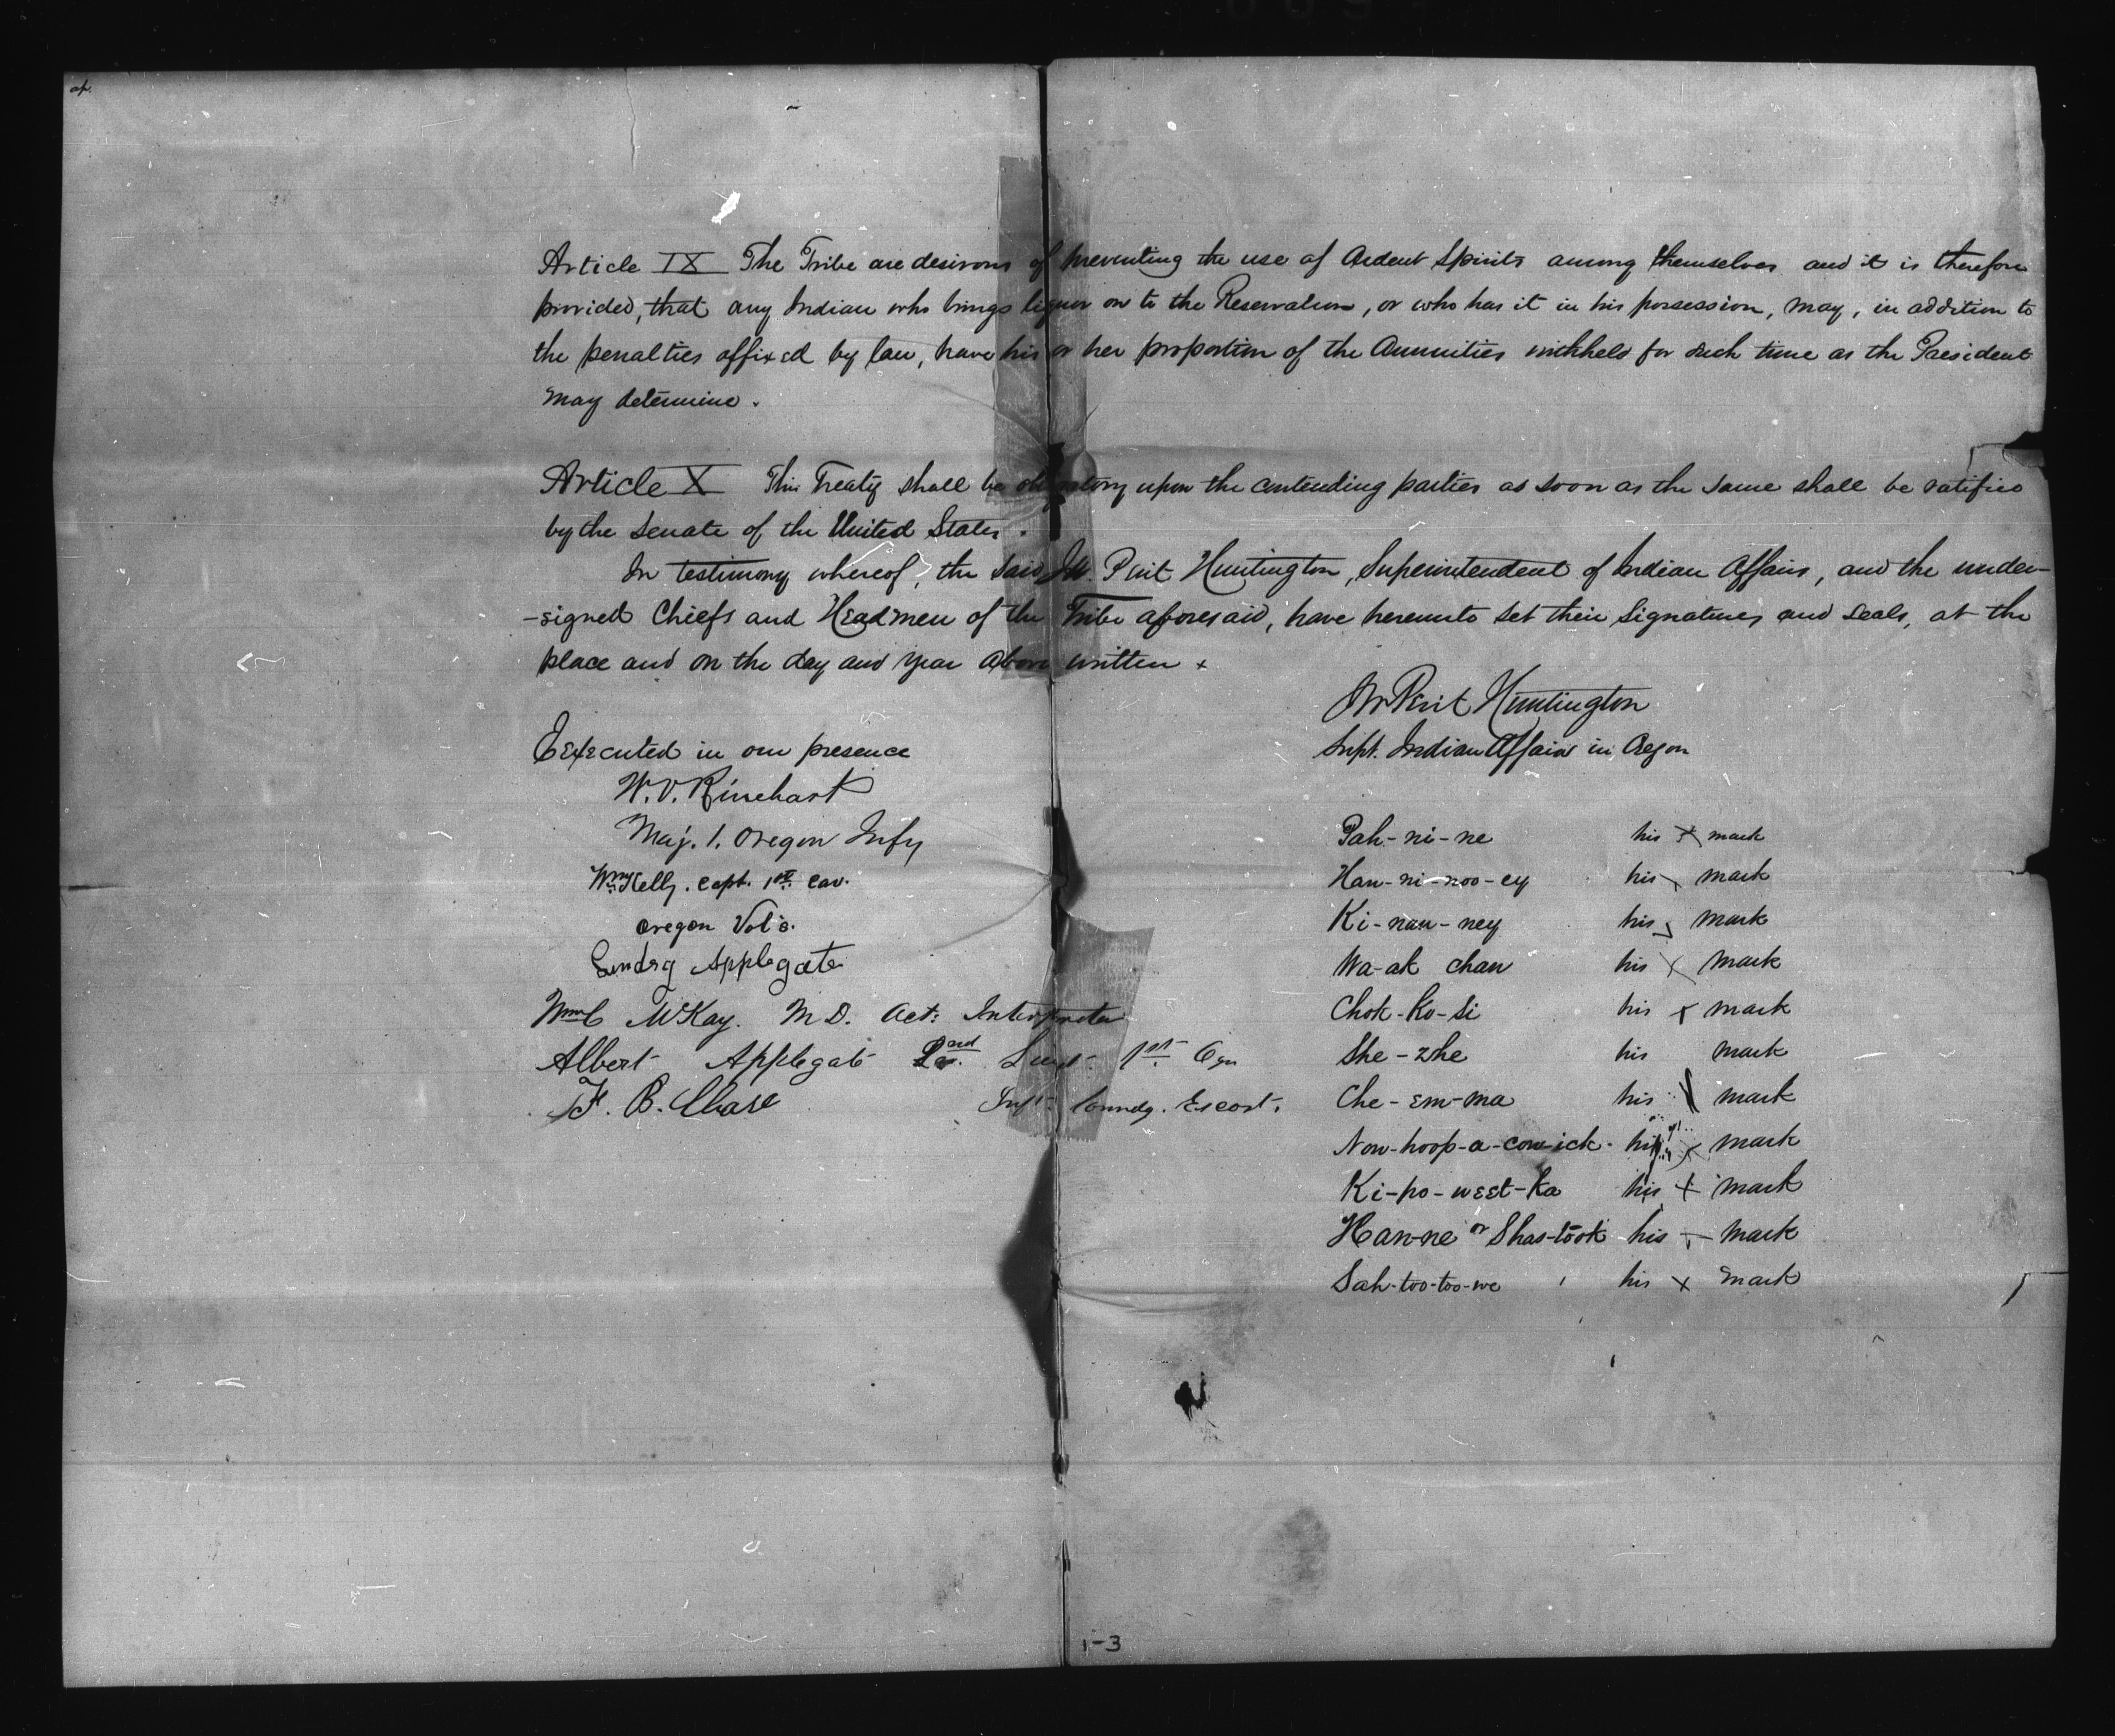 Article IX The Tribe are desirous of preventing the use of Ardent Spirits among themselves and it is therefore
provided, that any Indian who brings liquor on to the Reservation, or who has it in his possession, may, in addition to
the penalties affixed by law, have his or her proportion of the Annuities withheld for such time as the President
may determine.
Article X This Treaty shall be obligatory upon the contending parties as soon as the same shall be ratified
by the Senate of the United States.
In testimony whereof, the said J.W. Perit Huntington, Superintendent of Indian Affairs, and the under-
-signed Chiefs and Headmen of the Tribe aforesaid, have hereunto set their signatures and seals, at the
place and on the day and year above written
J W Perit Huntington
Supt. Indian Affairs in Oregon
Executed in our presence
W. V. Rinehart
Maj. 1. Oregon Infy
Wm Kelly. Capt. 1st Cav.
Oregon Vols.
Lindsy Applegate
Wm C McKay. M D. Act: Interpreter
Albert Applegate 2nd Lieut. 1st Ogn
F. B. Chase Inft. Comndg. Escort.
Pah-ni-ne his x mark
Hau-ni-noo-ey his x mark
Ki-nau-ney his x mark
Wa-ak chau his x mark
Chok-ko-si his x mark
She-zhe his mark
Che-em-ma his x mark
Now-hoop-a-cow-ick. his x mark
Ki-po-weet-ka his x mark
Han-ne or Shas-took his x mark
Sah-too-too-we his x mark
1-3